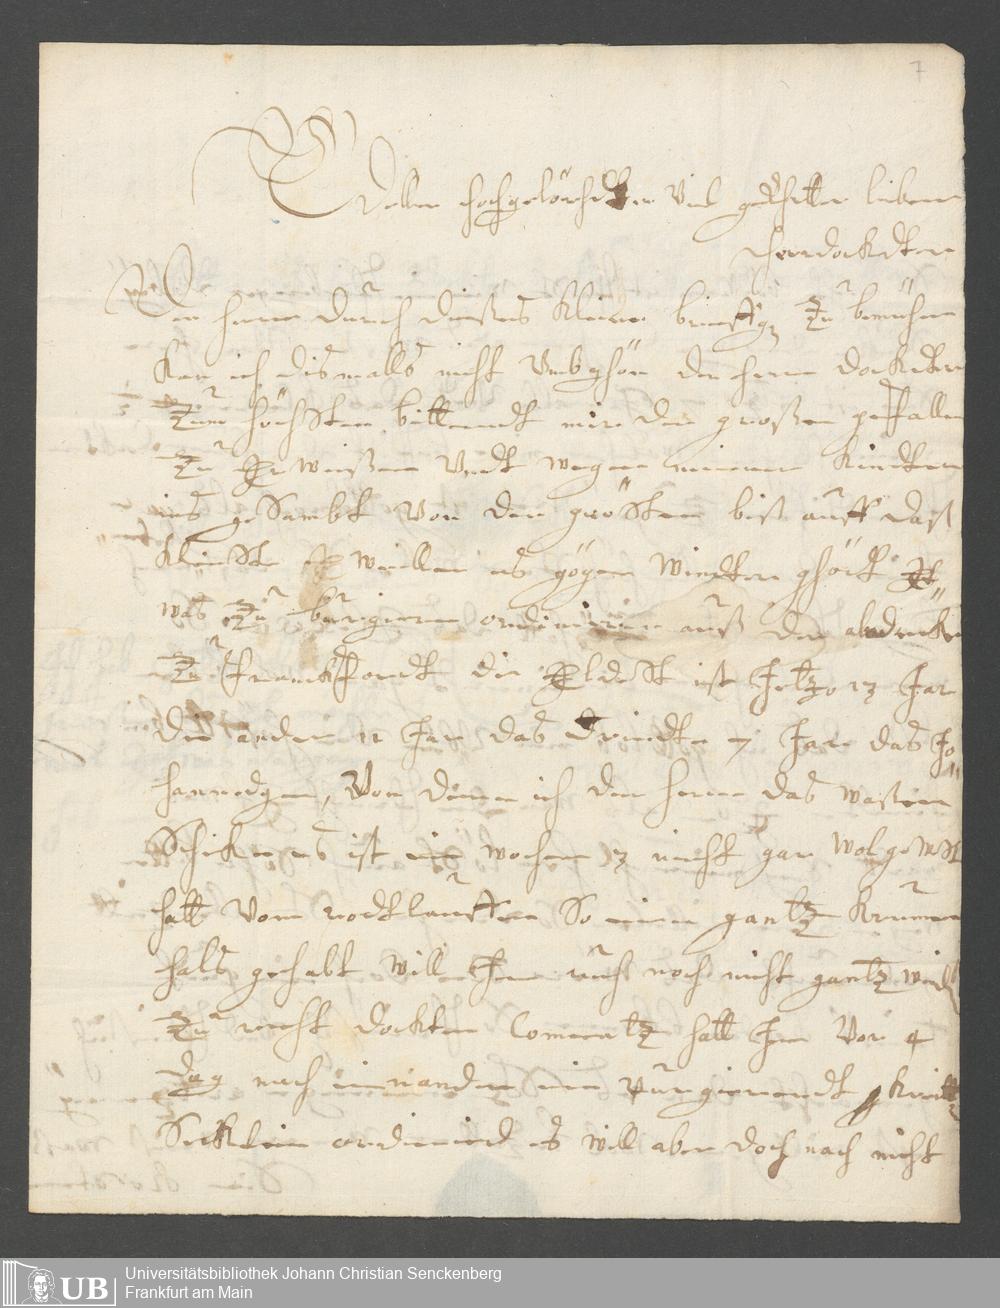 7
Edler hochgelörhder Vil geEhrtter lieber
Herrdockdter
Den herrn durch dießes kleine brieffg Zu bemühen
kan ich dismalls nicht Umbghön den herrn dockdter
Zum höchsten bittendt mir den großen gefallen
Zu Erweißen Undt wegen meiner kindter
ins gesambt Von den grösten biß auff daß
kleinste weillen es gögen Windter ghört Et
was Zu burgieren ordiniren auß der abdeckh
Zu Franckffordt die Eldest ist Jetzo 13 Jar
die ander 11 Jar das dridte 7 Jar das Jo
hannedgen, Von deme ich den herrn das waßer
Schicke es ist ein wochen 3 nicht gar wol gewest
hatt Vom rodtlauffen So einen gantz krumen
hals gehabt will Jm auch noch nicht gantz wider
Zu recht dockter Lomeatz hatt Jm Vor 4
dag nach einnander ein purgierendt kreitter
Secklein ordinierd es will aber doch nach nicht
UB
Universitätsbibliothek Johann Christian Senckenberg
Frankfurt am Main